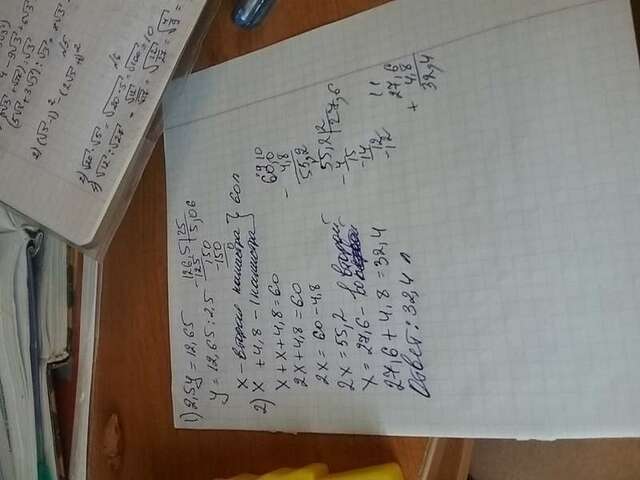 1) 2,5y = 12,65
y = 12,65 : 2,5
126,5 | 25
- 125 5,06
150
- 150
0
2) x - вторая канистра } 60 л
x + 4,8 - 1 канистра
x + x + 4,8 = 60
2x + 4,8 = 60
2x = 60 - 4,8
2x = 55,2
x = 27,6 - в второй
27,6 + 4,8 = 32,4
Ответ: 32,4 л
9 10
60,0
- 4,8
55,2
55,2 | 2
- 4 27,6
15
- 14
12
- 12
1 1
27,6
+ 4,8
32,4
2) (√3 - 1)²
√5
√6
2) √20 · √5 = √20 · 5 = √100 = 10